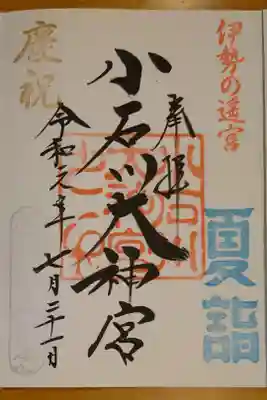 伊勢の遥宮
夏詣
奉拝
小石川大神宮
慶祝
令和元年七月二十一日